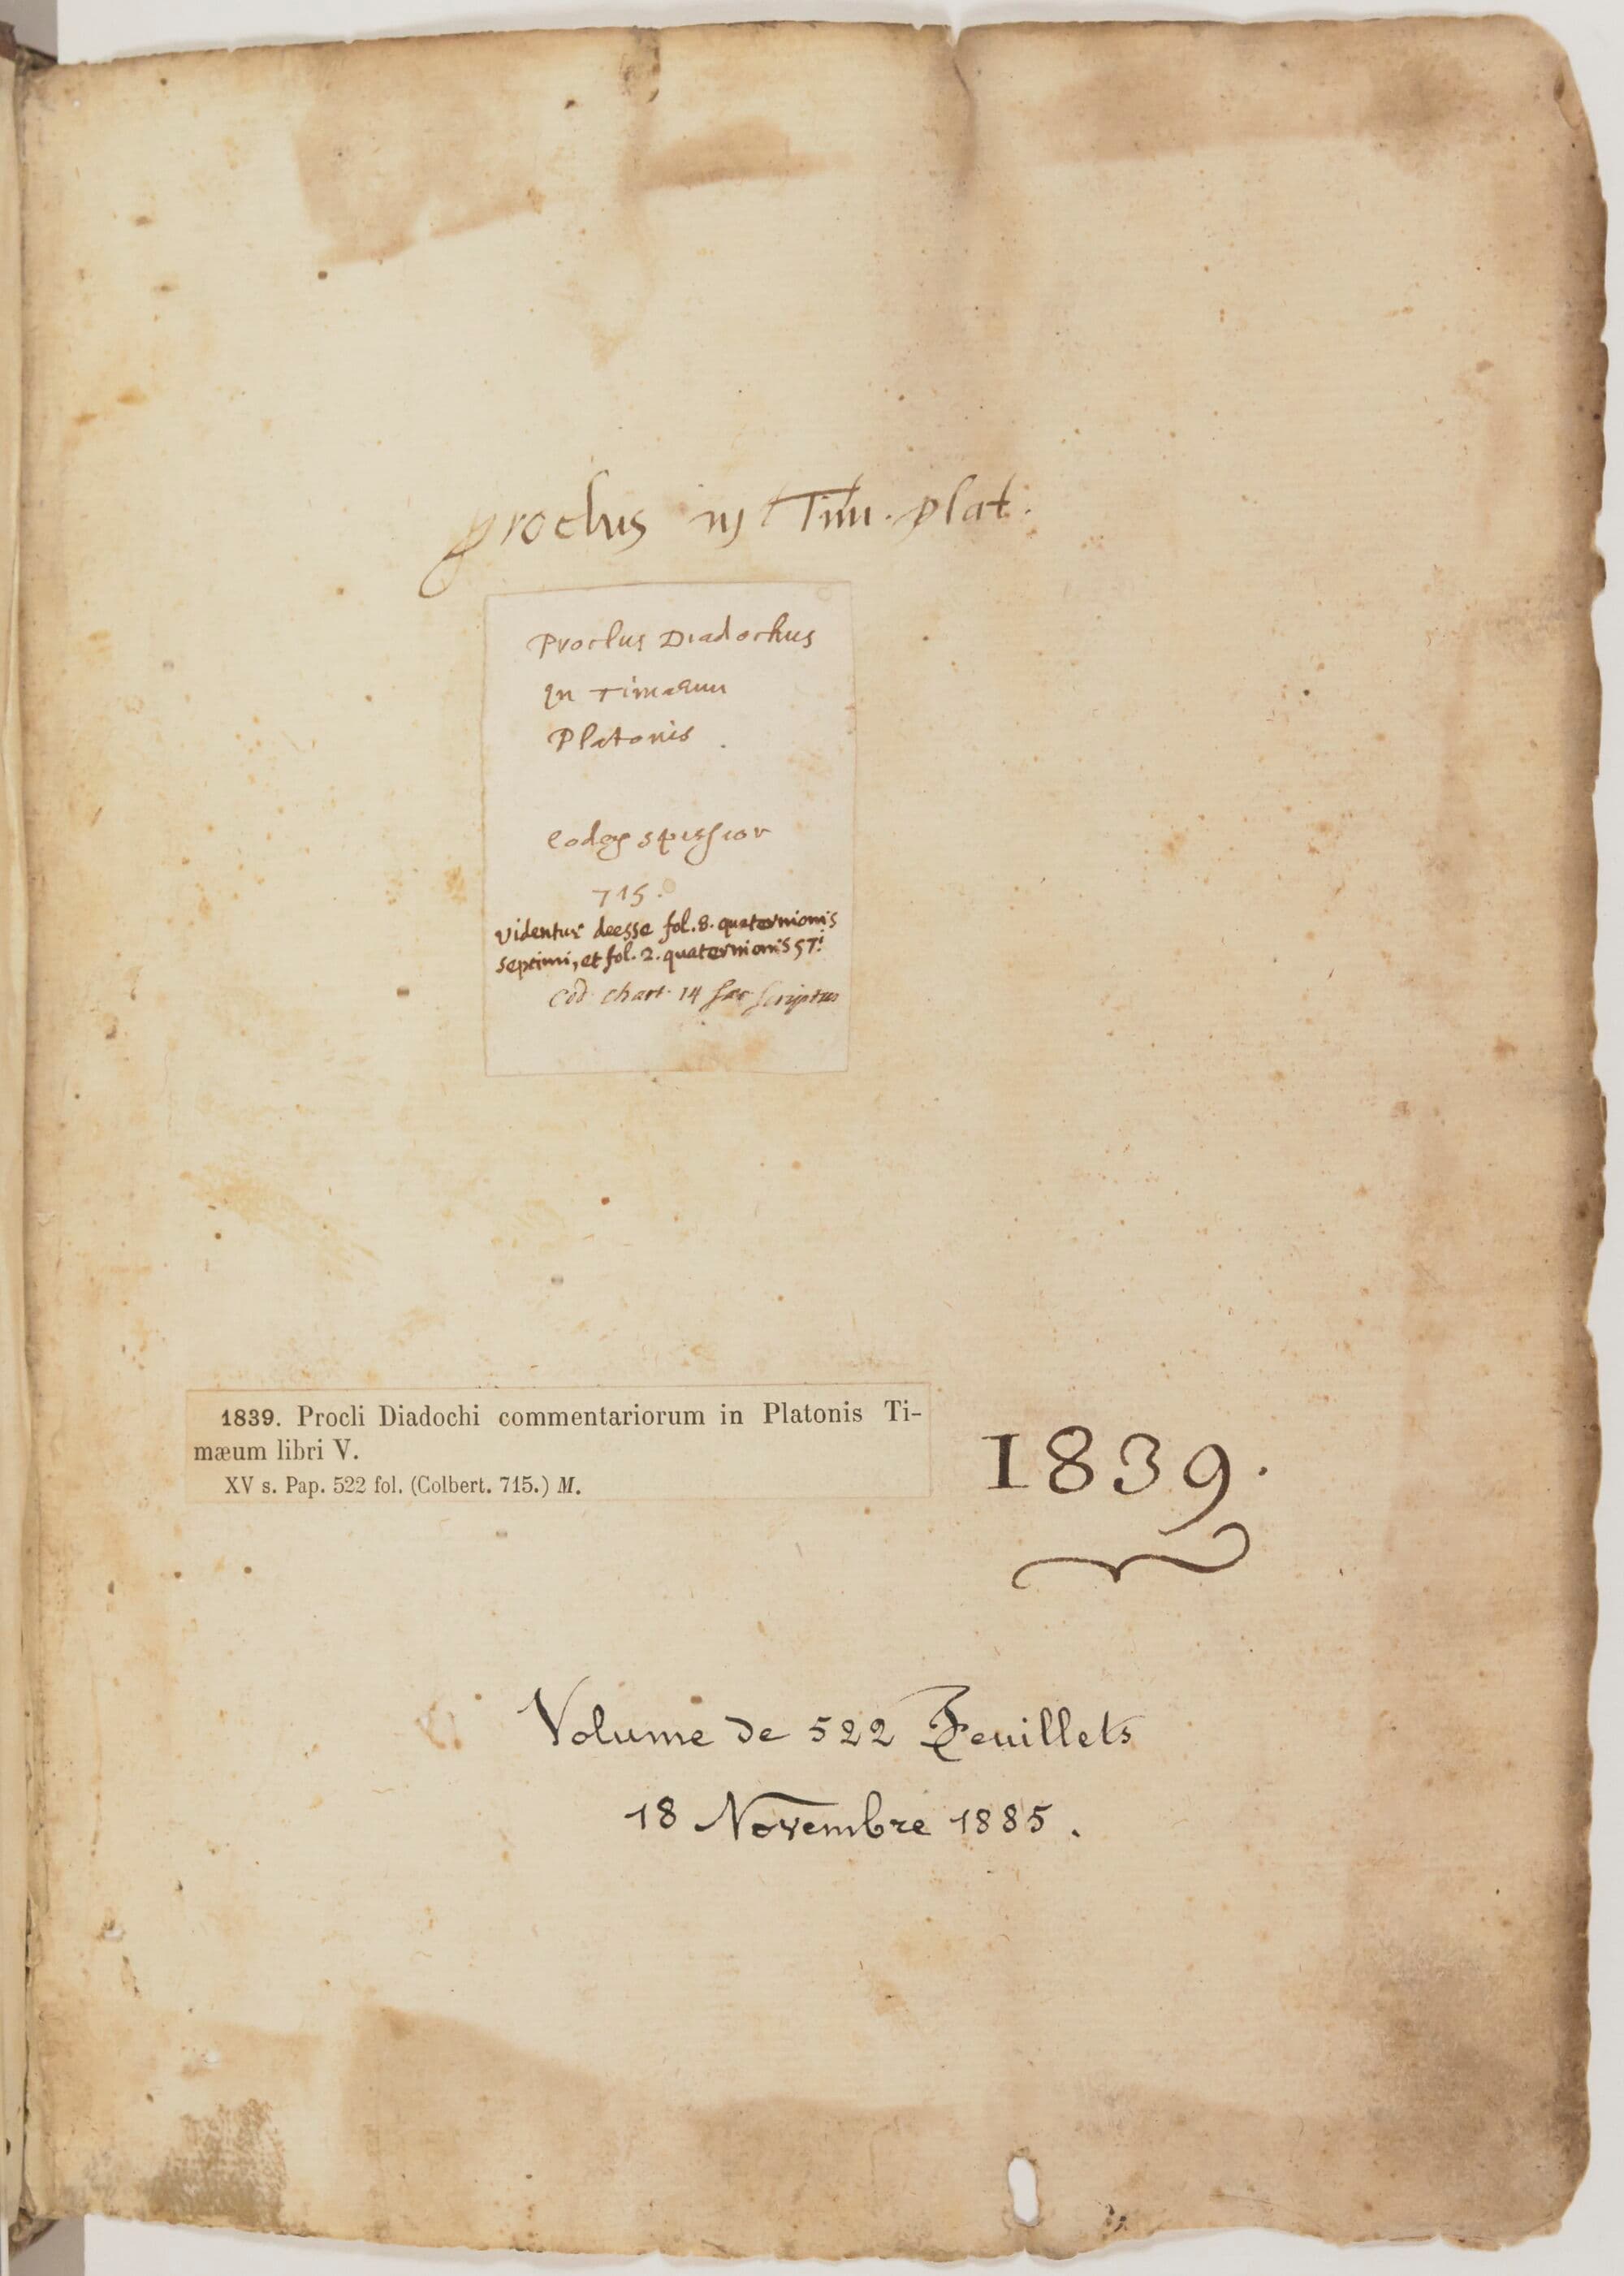 proclus in Tim. plat.
Proclus Diadochus
In Timaeum
Platonis.
Codex spissior
715.
Videntur deesse fol. 8. quaternionis
septimi, et fol. 2. quaternionis 57i.
Cod. chart. 14 saec scriptus
1839. Procli Diadochi commentariorum in Platonis Ti-
mæum libri V.
XV s. Pap. 522 fol. (Colbert. 715.) M.
1839.
Volume de 522 Feuillets
18 Novembre 1885.